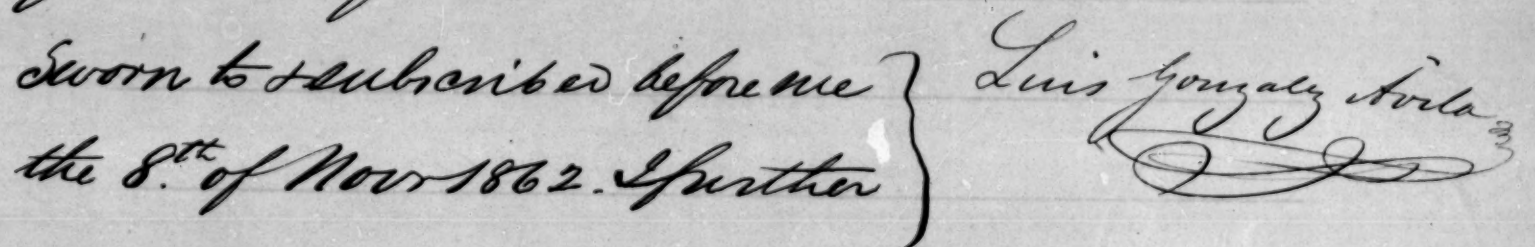 Sworn to & subscribed before me
the 8.th of Novr 1862. I further
Luis Gonzalez Avila